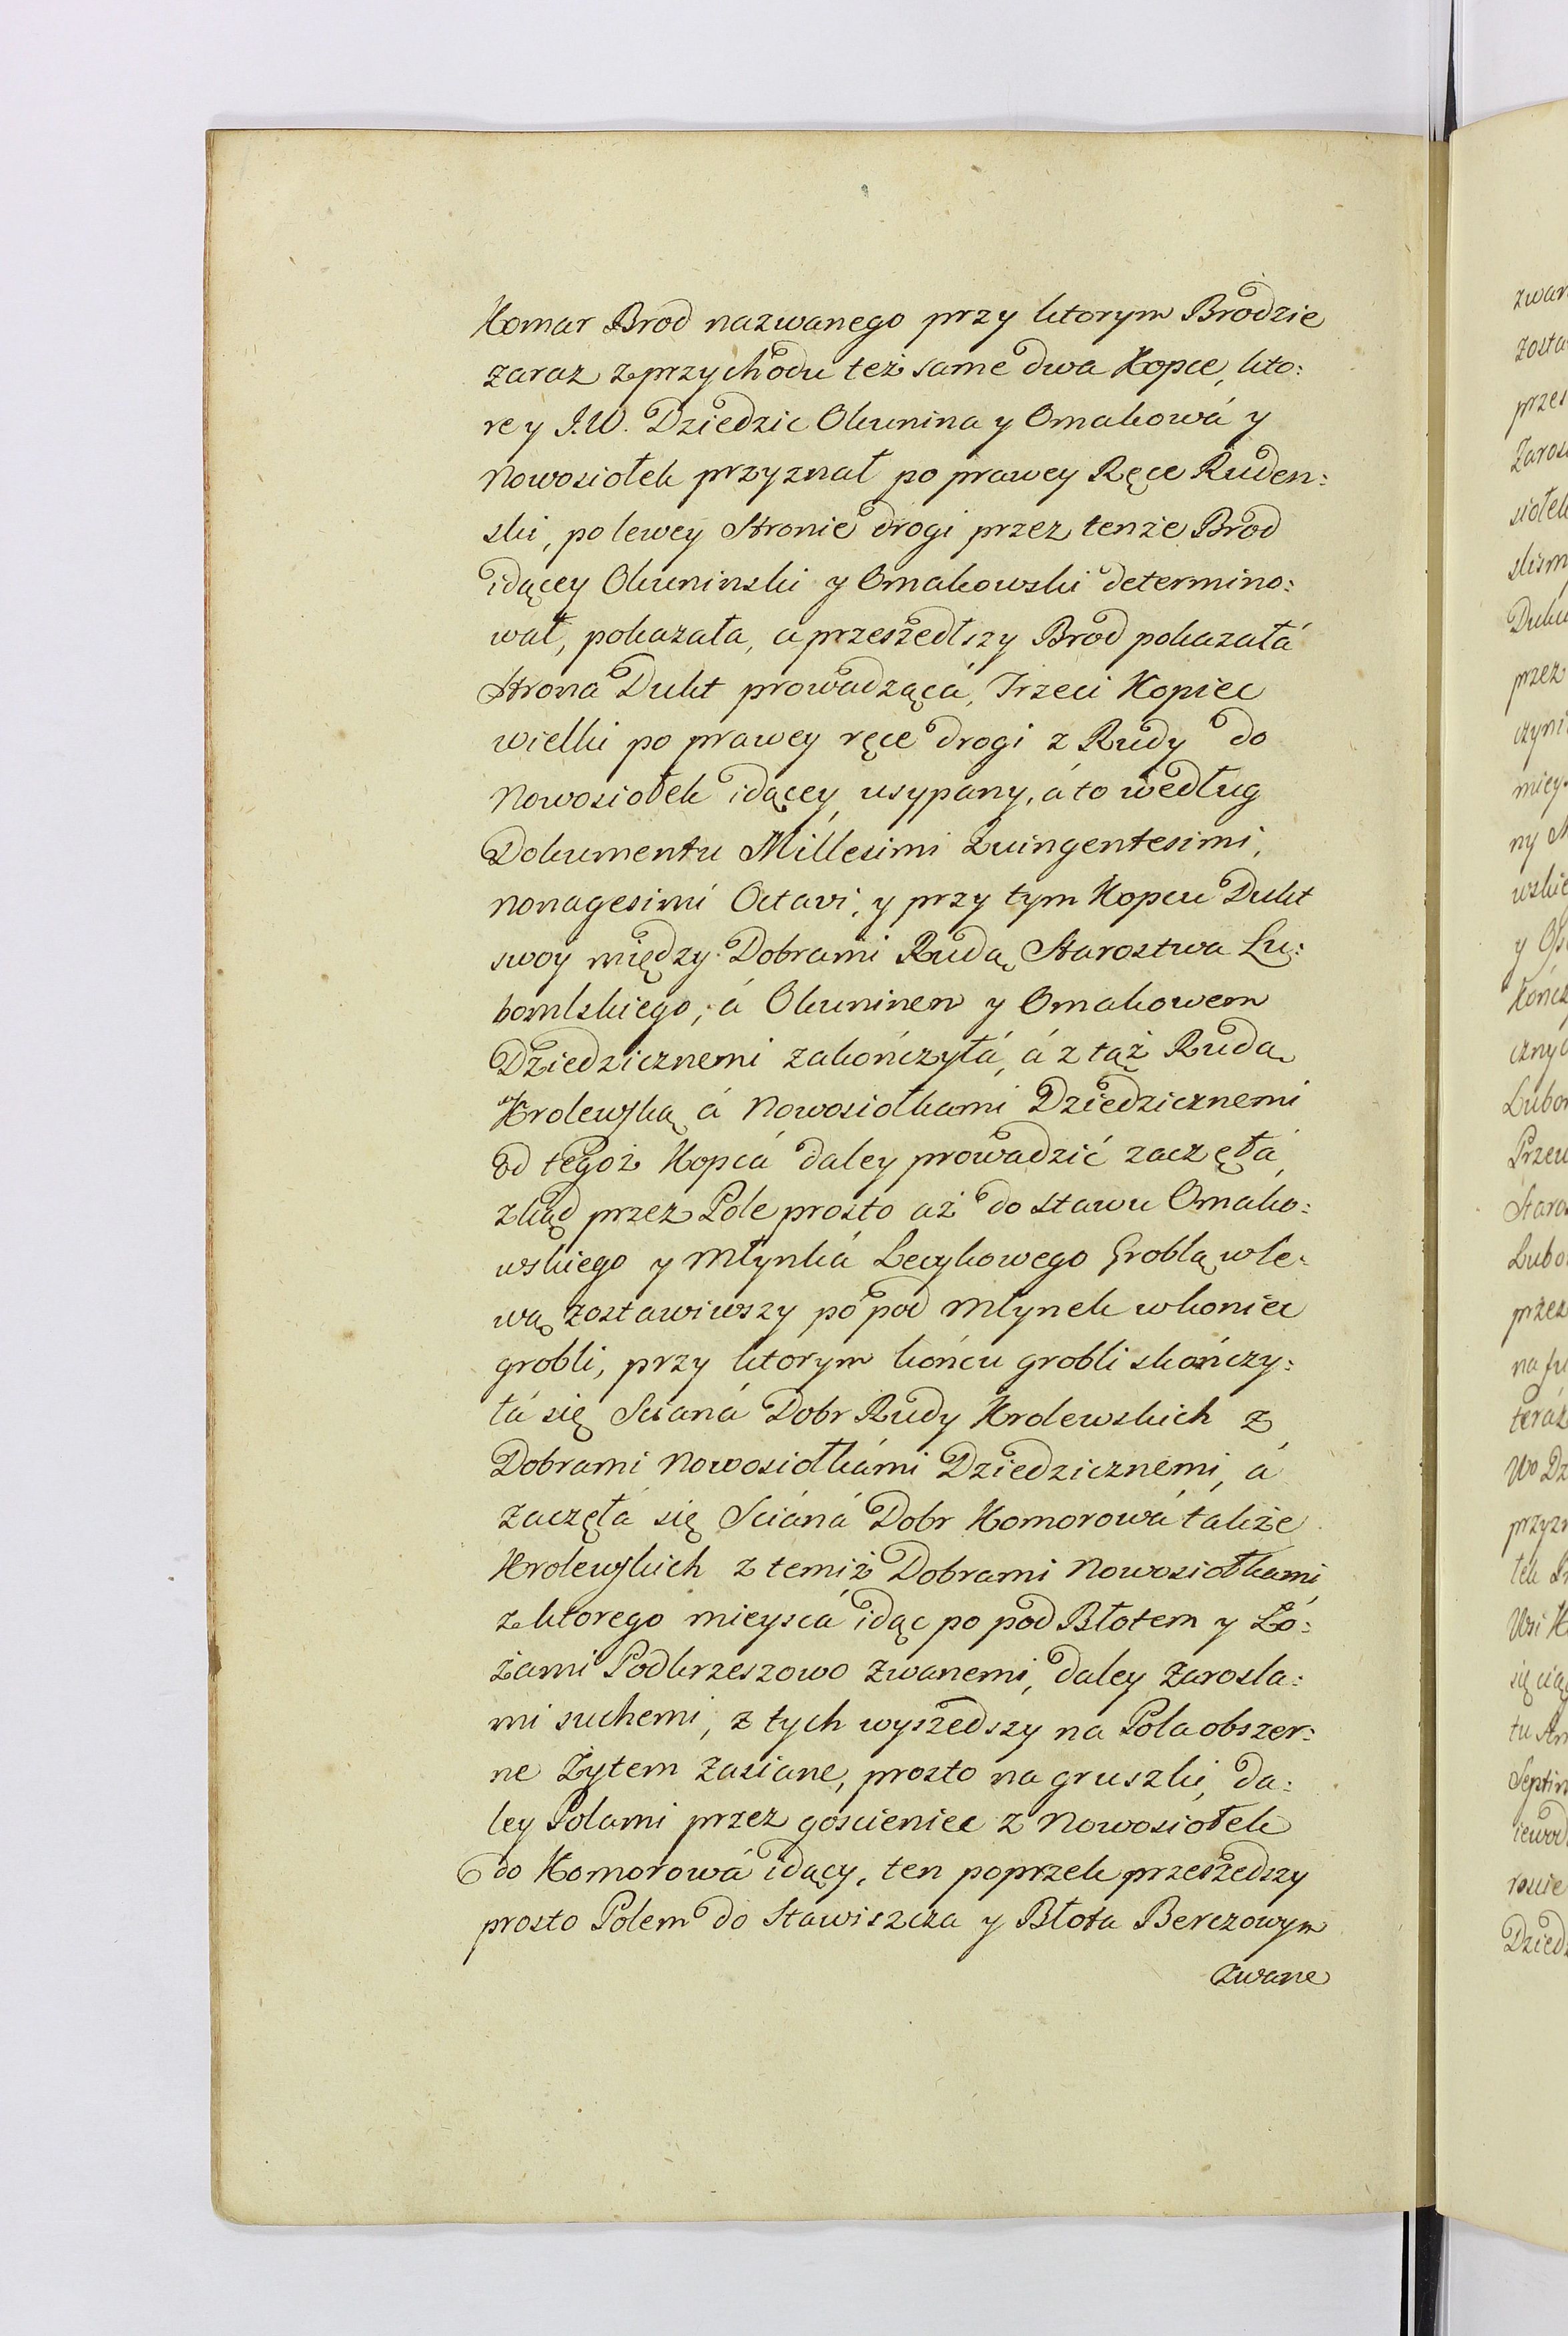 Komar Brod nazwanego przy ktorym Brodzie
zaraz z przychodu też same dwa Kopce, kto:
re y J.W. Dziedzic Okunina y Omakowá y
Nowosiołek przyznał po prawey Ręce Ruden:
ski, po lewey Stronie drogi przez tenże Brod
idącey Okuninski y Omakowski determino:
wał, pokazała, a przeszedłszy Brod pokazałá
Strona Dukt prowadzącá, Trzeci Kopiec
wielki po prawey ręce drogi z Rudy do
Nowosiołek idącey usypany, á to według
Dokumentu Millesimi Quingentesimi,
nonagesimi Octavi, y przy tym Kopcu Dukt
swoy między Dobrami Rudą Starostwa Lu:
bomlskiego, á Okuninem y Omakowem
Dziedzicznemi zakończyłá, á z tąż Rudą
Krolewską á Nowosiołkami Dziedzicznemi
od tegoż Kopcá daley prowadzić zaczęłá,
zkąd przez Pole prosto aż do stawu Omako:
wskiego y Młynká Lecykowego Groblą w le:
wą zostawiwszy po pod Młynek w koniec
grobli, przy ktorym końcu grobli skończy:
łá się Scianá Dobr Rudy Krolewskich z
Dobrami Nowosiołkámi Dziedzicznemi, á
zaczęłá się Sciáná Dobr Komorowá także
Krolewskich z temiż Dobrami Nowosiołkami
z ktorego mieyscá idąc po pod Błotem y Ło:
zami Podbrzeszowo zwanemi, daley zarosla:
mi suchemi, z tych wyszedszy na Pola obszer:
ne Żytem zasiane, prosto na gruszki, da:
ley Polami przez gościeniec z Nowosiołek
do Komorowá idący, ten poprzek przeszedszy
prosto Polem do Stawiszcza y Błota Berczowym
zwane
zwan
zosta
przes
Zaros
siołek
skism
Duku
przez
czyni
miey
ny
wskie
y
Kończ
czny
Lubo
Przew
Staro
Lubo
przez
na
teráz
Wo Dz
przyzn
łek
Wsi K
się cią
tu
Septim
iewod
Dzied